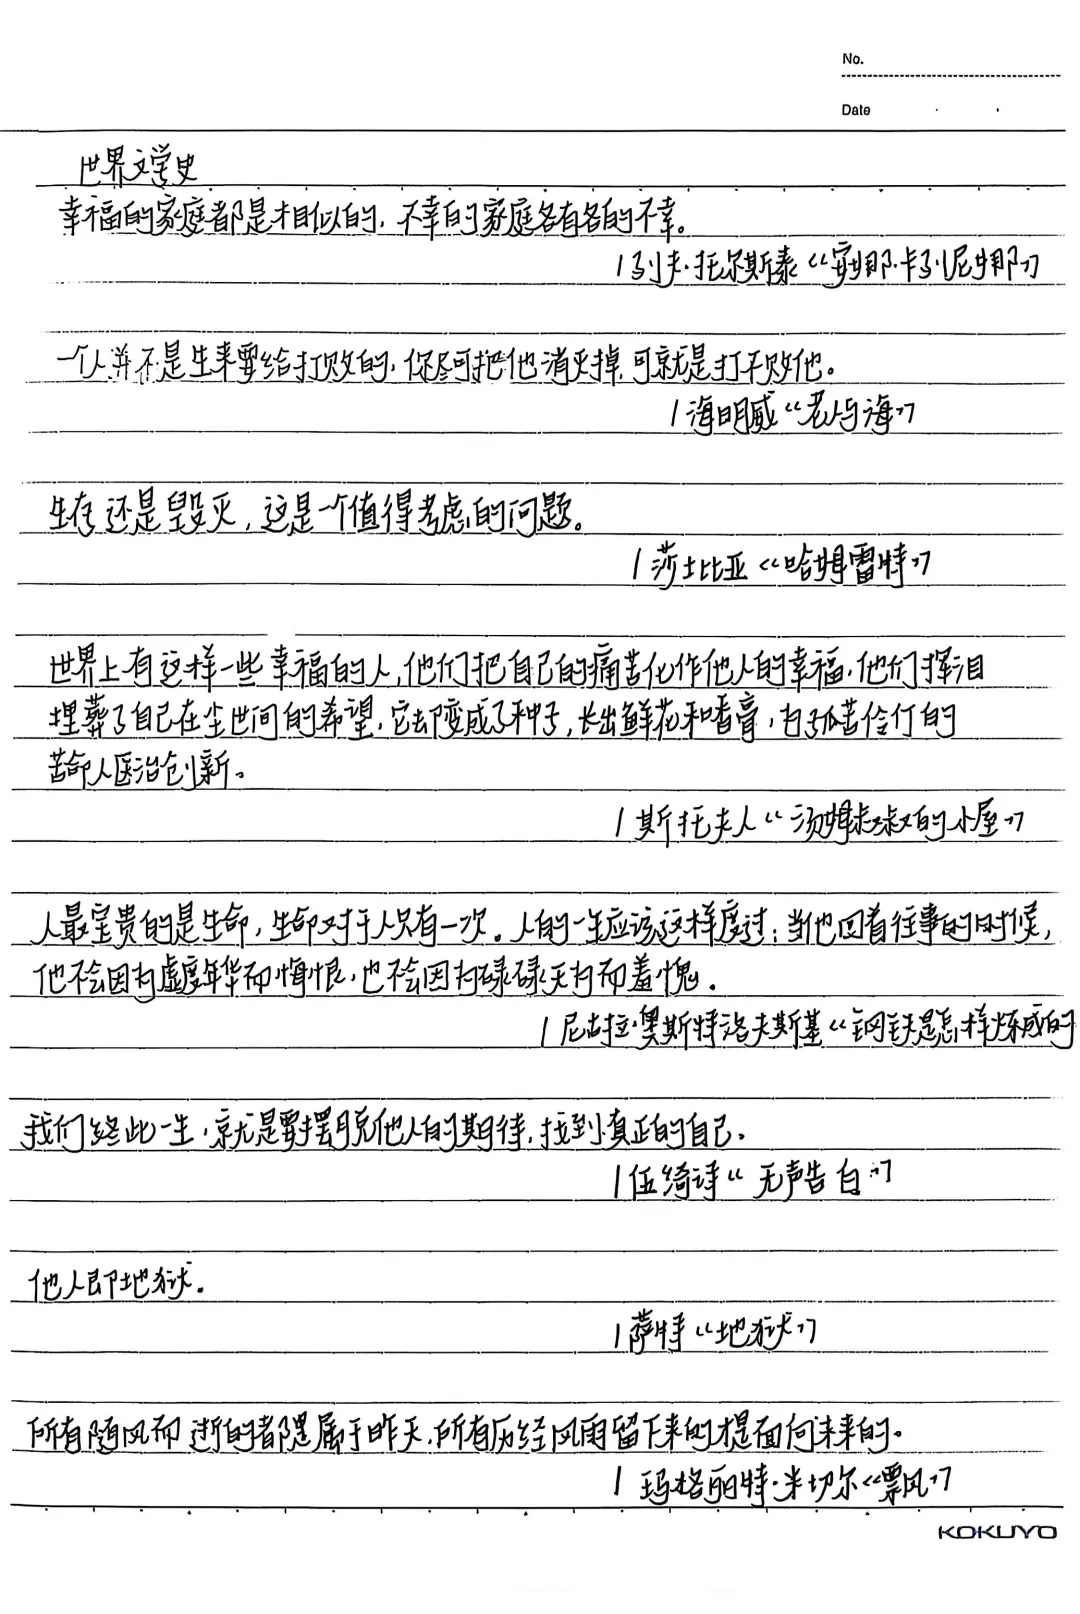 No.
Date
世界文学史
幸福的家庭都是相似的，不幸的家庭各有各的不幸。
|列夫·托尔斯泰《安娜·卡列尼娜》
一个人并不是生来要给打败的，你尽可把他消灭掉，可就是打不败他。
|海明威《老人与海》
生存还是毁灭，这是一个值得考虑的问题。
|莎士比亚《哈姆雷特》
世界上有这样一些幸福的人，他们把自己的痛苦化作他人的幸福，他们挥泪
埋葬了自己在尘世间的希望，它却变成了种子，长出鲜花和香膏，为孤苦伶仃的
苦命人医治创新。
|斯托夫人《汤姆叔叔的小屋》
人最宝贵的是生命，生命对于人只有一次。人的一生应该这样度过：当他回首往事的时候，
他不会因为虚度年华而悔恨，也不会因为碌碌无为而羞愧。
|尼古拉·奥斯特洛夫斯基《钢铁是怎样炼成的
我们终此一生，就是要摆脱他人的期待，找到真正的自己。
|伍绮诗《无声告白》
他人即地狱。
|萨特《地狱》
所有随风而逝的都是属于昨天，所有历经风雨留下来的才是面向未来的。
|玛格丽特·米切尔《飘风》
KOKUYO